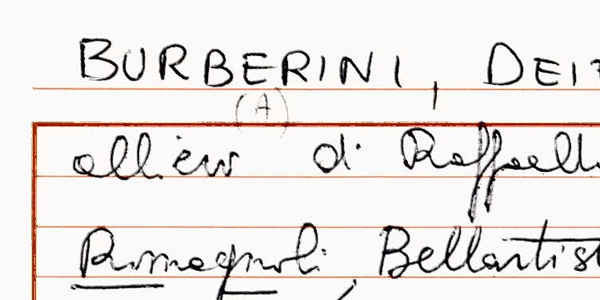 BURBERINI, DEI
(A)
allievo di Raffaello
Romagnoli, Bellartist